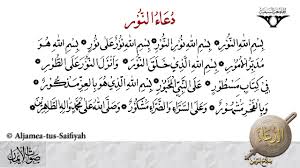 دُعَاءُ النُّوْر
بِسْمِ اللهِ النُّوْرِ، بِسْمِ اللهِ نُوْرِ النُّوْرِ، بِسْمِ اللهِ نُوْرٌ عَلَى نُوْرٍ، بِسْمِ اللهِ هُوَ
مُدَبِّرُ الْأُمُوْرِ، بِسْمِ اللهِ الَّذِيْ خَلَقَ النُّوْرَ، وَأَنْزَلَ النُّوْرَ عَلَى الطُّوْرِ،
فِيْ كِتَابٍ مَسْطُوْرٍ، عَلَى النَّبِيِّ الْمَحْبُوْرِ، بِسْمِ اللهِ الَّذِيْ هُوَ بِالْعِزِّ مَذْكُوْرٌ،
وَبِالْفَخْرِ مَشْهُوْرٌ، وَعَلَى السَّرَّاءِ وَالضَّرَّاءِ مَشْكُوْرٌ، وَصَلَّى اللهُ عَلَى مُحَمَّدٍ وَاٰلِهِ الطَّاهِرِيْنَ،
© Aljamea-tus-Saifiyah